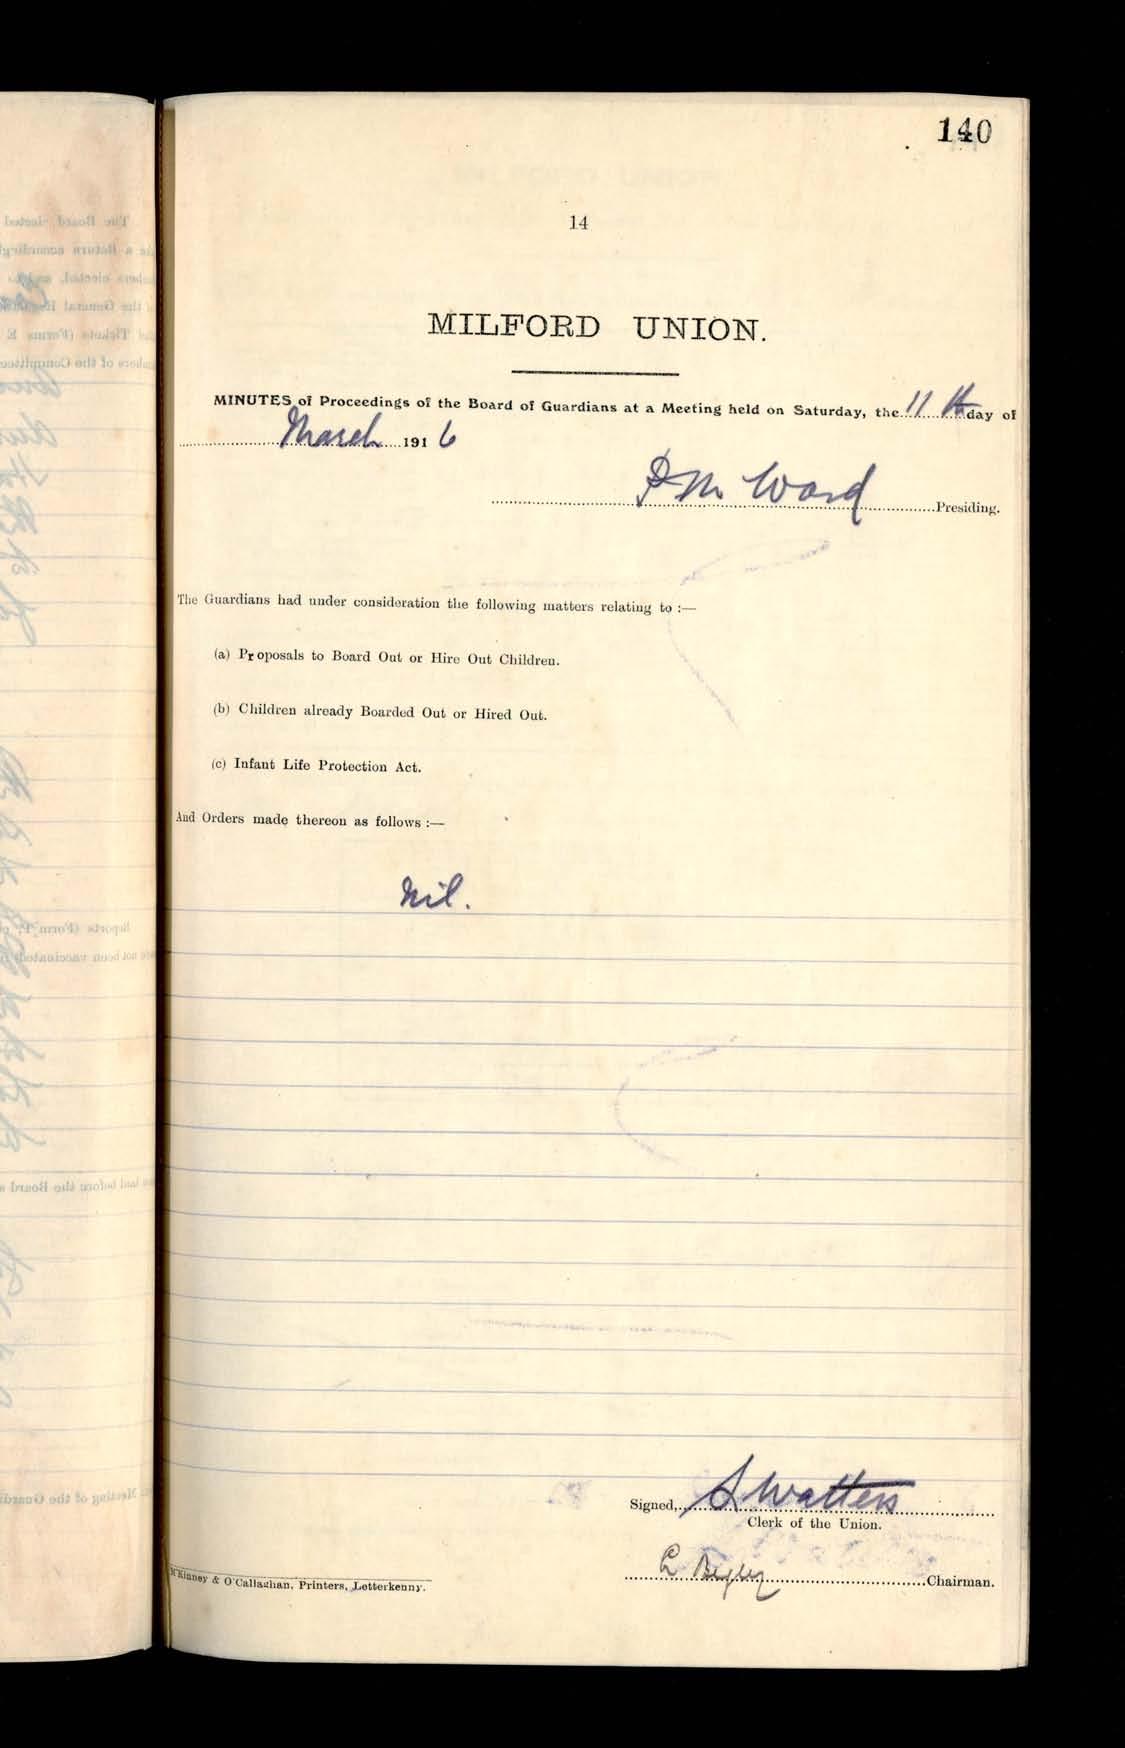 140
14
MILFORD UNION.
MINUTES of Proceedings of the Board of Guardians at a Meeting held on Saturday, the 11th day of
March 1916
P M Ward Presiding.
The Guardians had under consideration the following matters relating to :—
(a) Proposals to Board Out or Hire Out Children.
(b) Children already Boarded Out or Hired Out.
(c) Infant Life Protection Act.
And Orders made thereon as follows :—
Nil.
Signed, S Watters
Clerk of the Union.
Begley Chairman.
McKinney & O'Callaghan, Printers, Letterkenny.